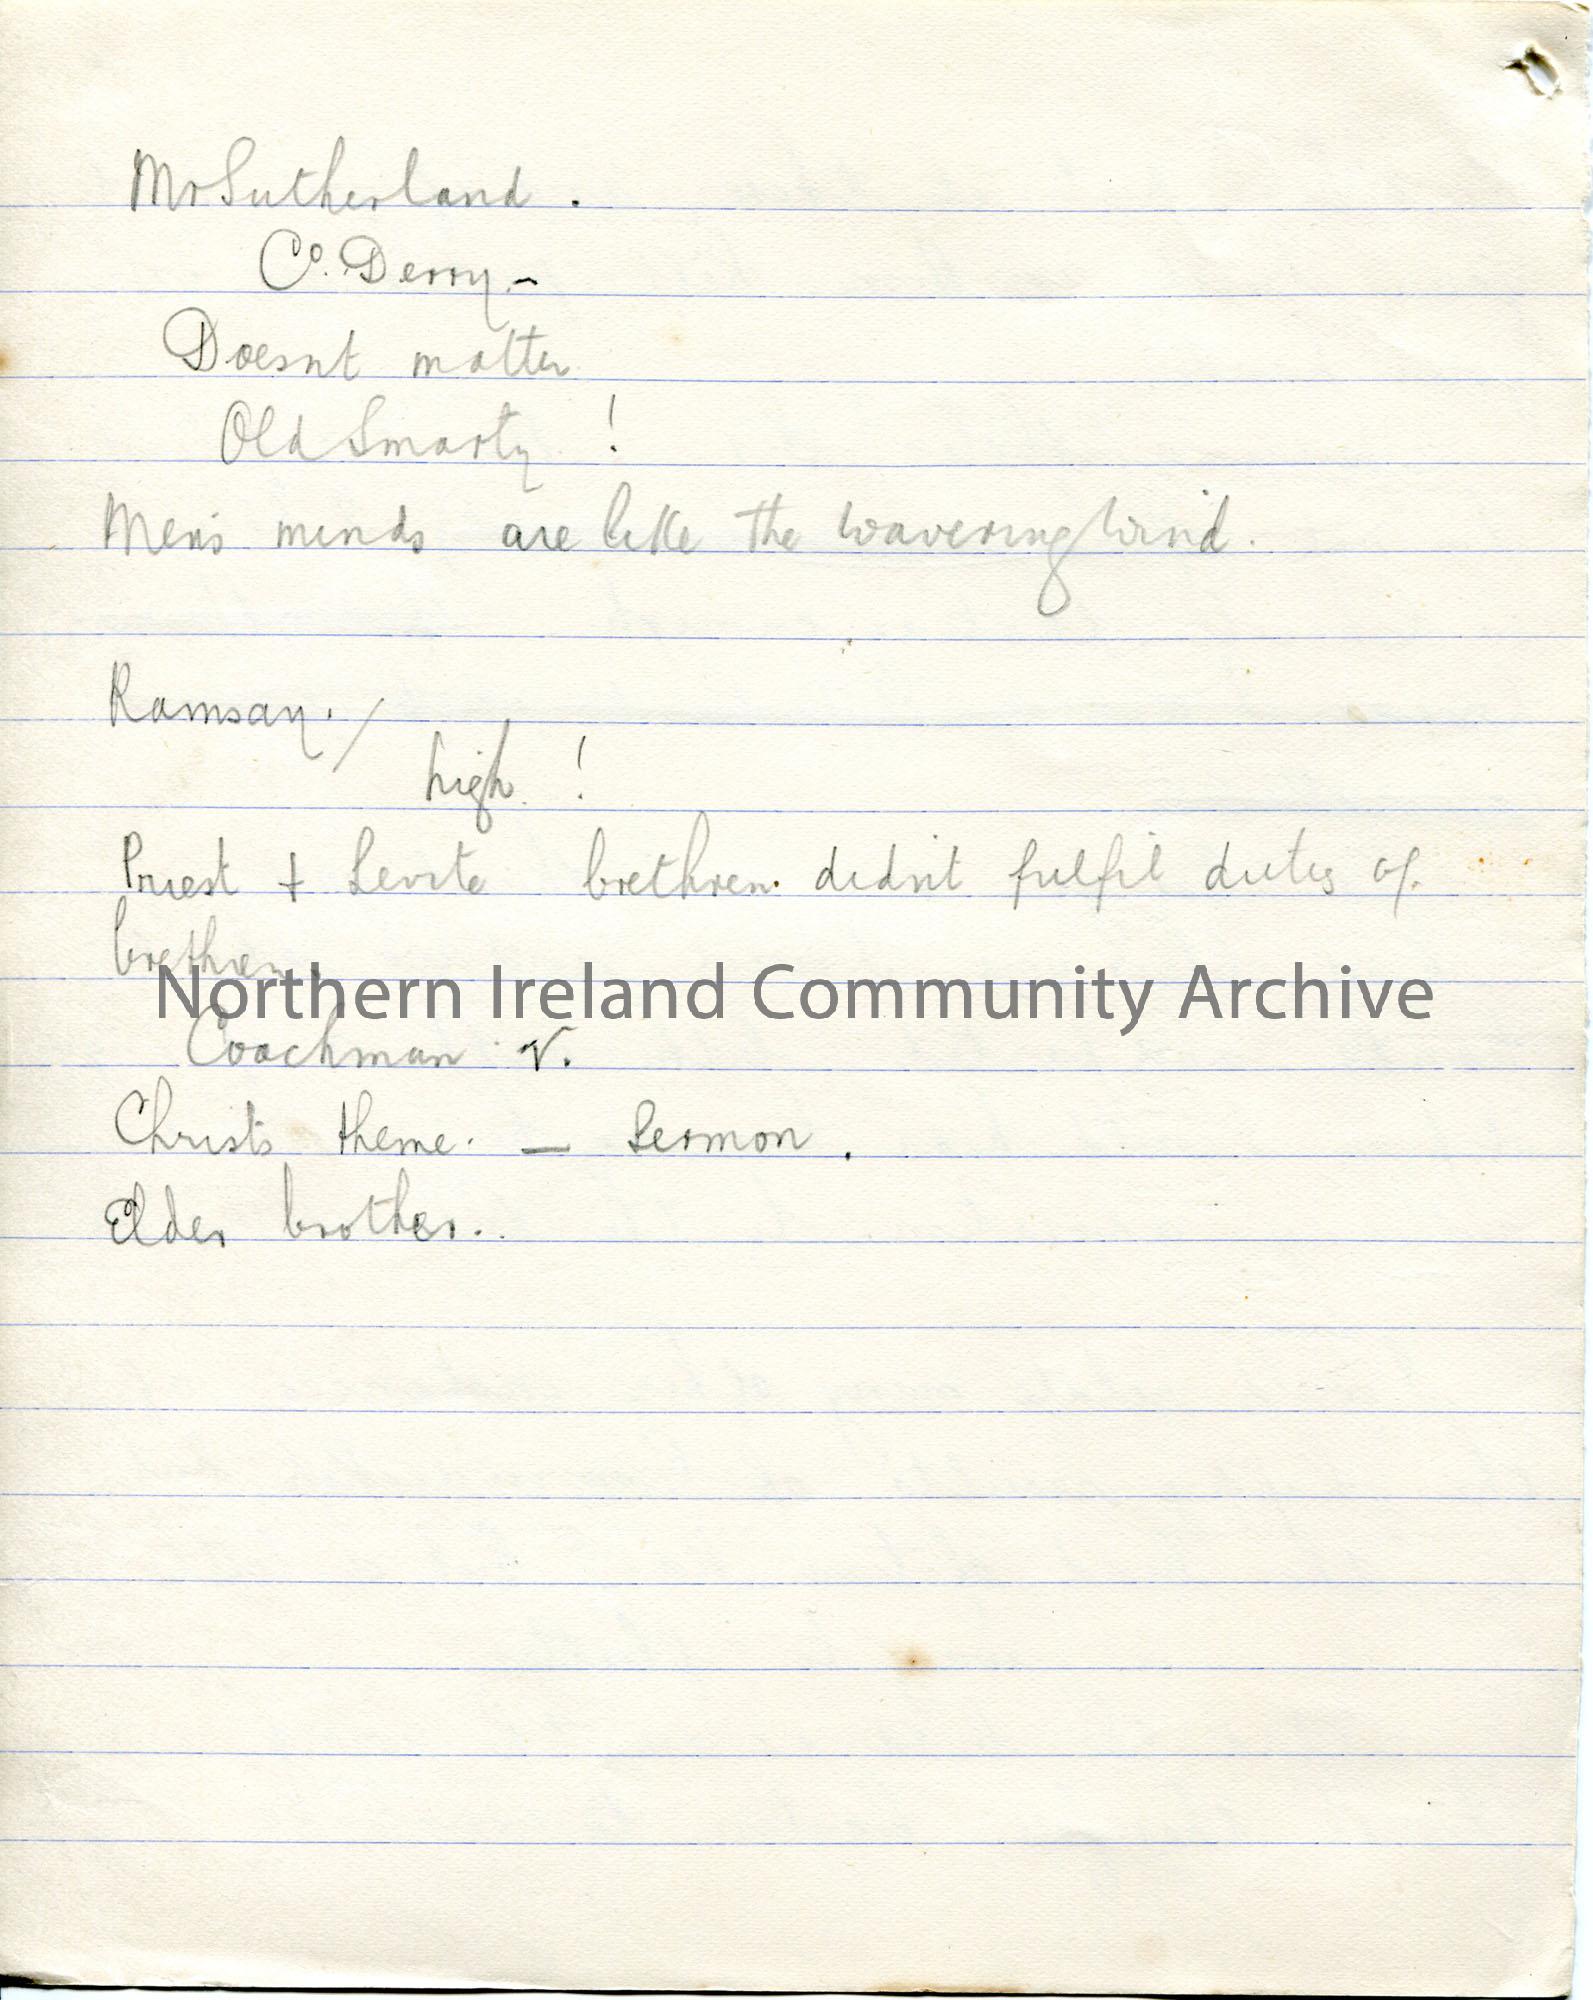 Mr Sutherland.
Co. Derry –
Doesnt matter
Old Smarty !
Men's minds are like the wavering wind.
Ramsay. /
high !
Priest + Levite brethren. didn't fulfil duties of
brethren.
Northern Ireland Community Archive
Coachman V.
Christs theme. — Sermon.
Elder brother..